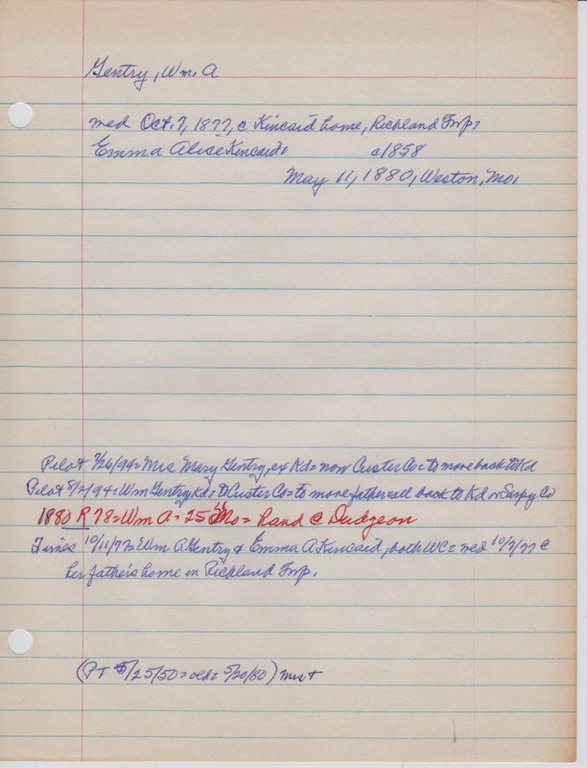 Gentry, Wm. A
med Oct. 7, 1877, @ Kincaid home, Richland Twp.
Emma Alice Kincaid c1858
May 11, 1880, Weston, Mo.
Pilot 7/26/94= Mrs Mary Gentry, ex Kd= now Custer Co= to move back to Kd
Pilot 8/2/94= Wm Gentry, Kd= to Custer Co= to move father all back to Kd Sarpy Co
1880 R 78= Wm A= 25 Mo= hand @ Dudgeon
Times 10/11/77= Wm A Gentry & Emma A Kincaid, both WC= med 10/7/77 @
her father's home in Richland Twp.
(PT 5/25/50= old= 5/20/80)